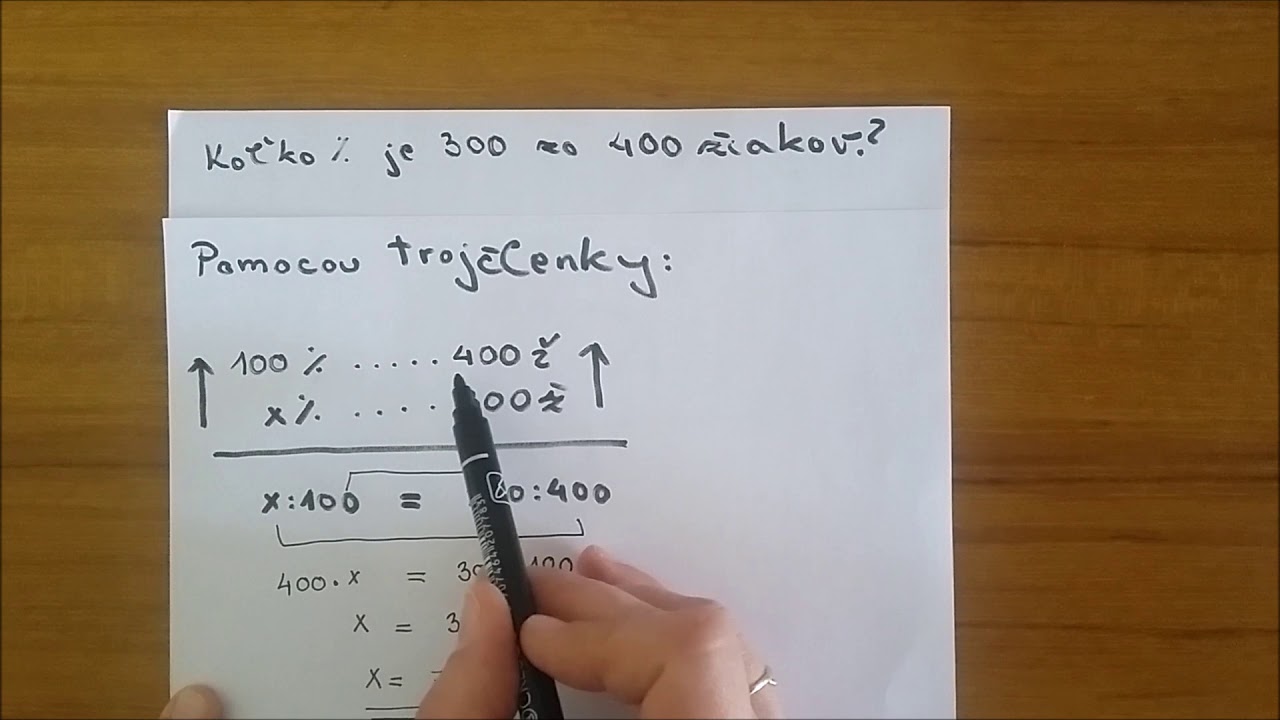 Koľko % je 300 zo 400 žiakov?
Pomocou trojčlenky:
100 % ..... 400 ž
x % .... 00 ž
x:100 = 0:400
400.x = 30 100
x = 3
x =